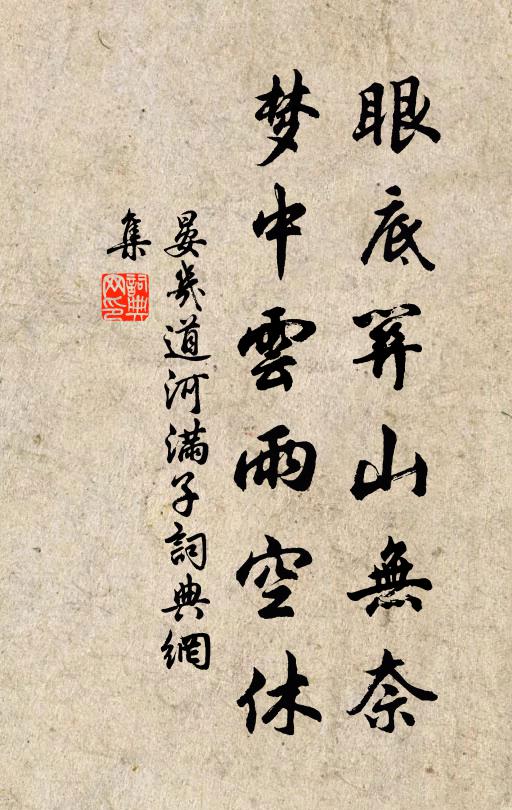 眼底關山無奈
梦中雲雨空休
晏幾道河滿子詞典網
集
詞典网印